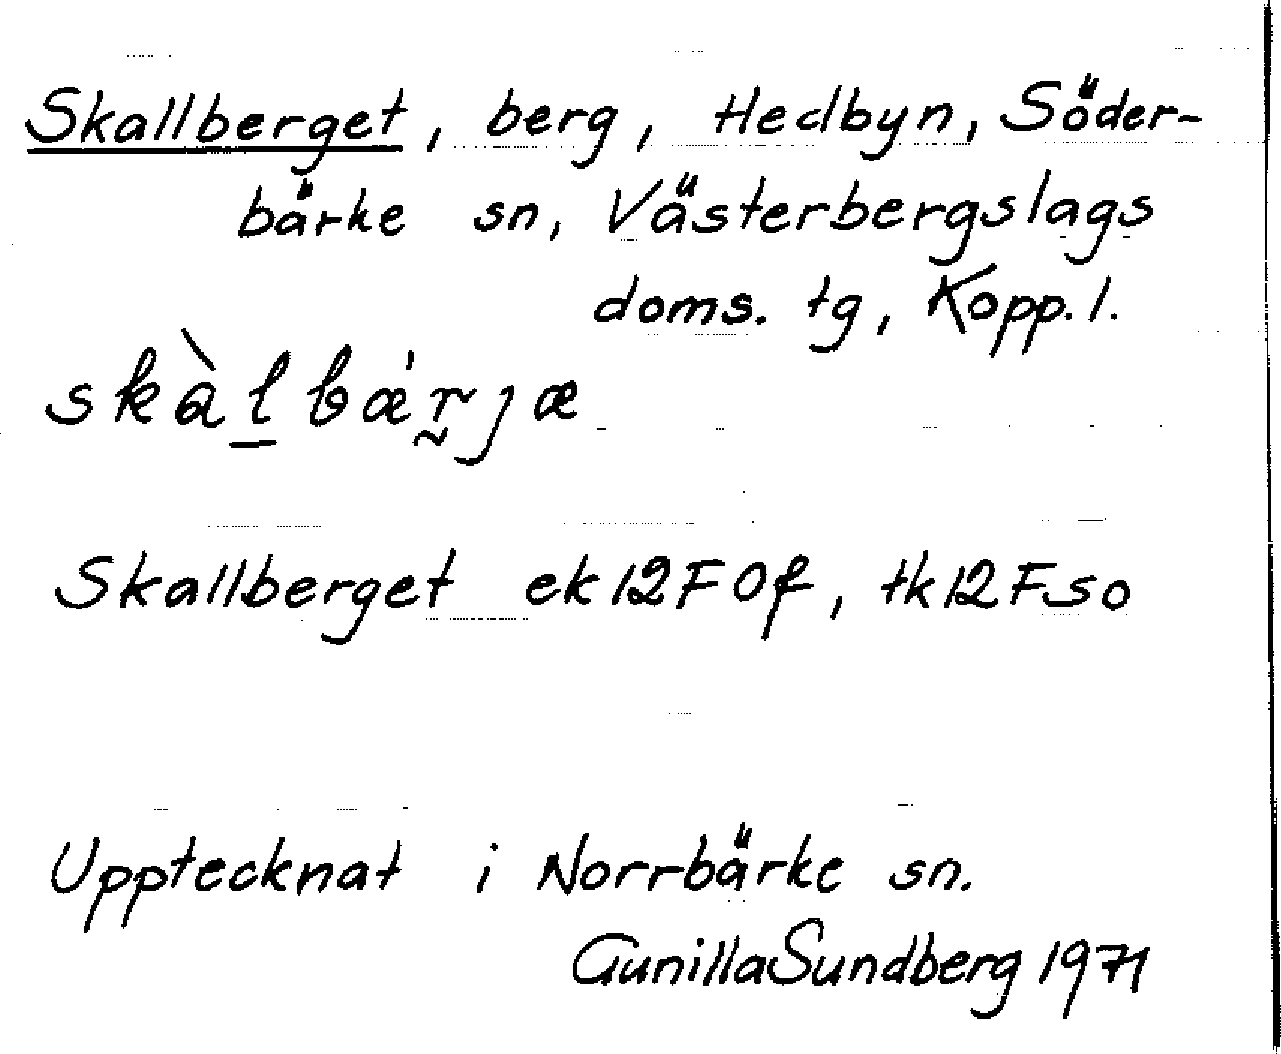 Skallberget, berg, Hedbyn, Söder-
bärke sn, Västerbergslags
doms. tg, Kopp. l.
skàl̠bæ̍r̰jæ
Skallberget ek12F0f, tk12Fso
Upptecknat i Norrbärke sn.
Gunilla Sundberg 1971